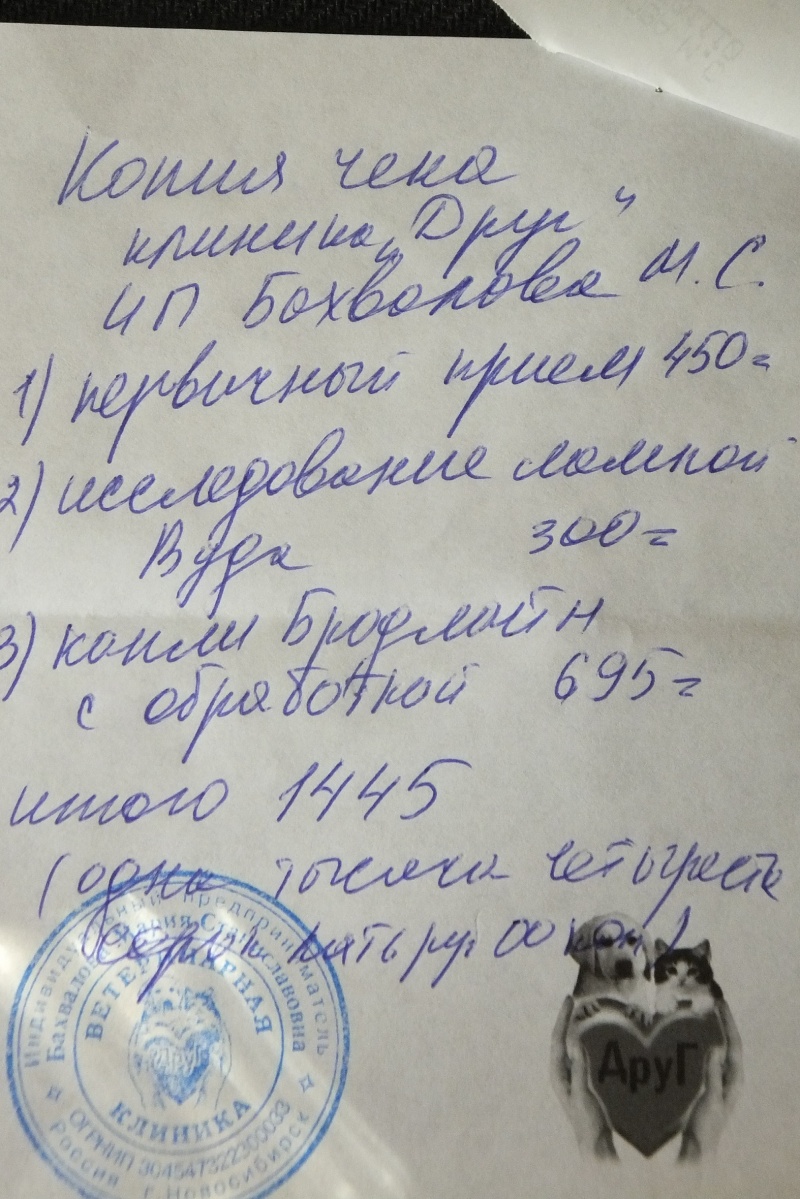 Копия чека
клиника „Друг"
ИП Бахвалова М. С.
1) первичный прием 450=
2) исследование лампой
Вуда 300=
3) капли Бродлайн
с обработкой 695=
итого 1445
(одна тысяча четыреста
сорок пять ру. 00 коп)
Индивидуальный предприниматель
Бахвалова Мария Станиславовна
ВЕТЕРИНАРНАЯ
ДруГ
КЛИНИКА
ОГРНИП 304547322300033
Россия г. Новосибирск
ДруГ